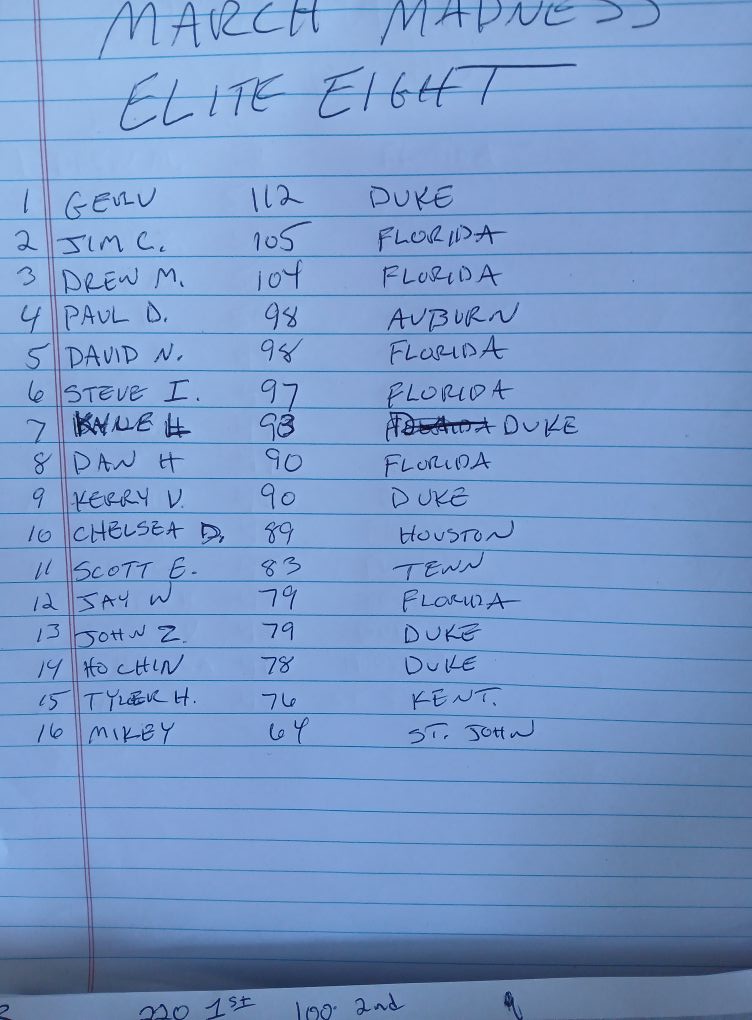 MARCH MADNESS
ELITE EIGHT
1 GERU 112 DUKE
2 JIM C. 105 FLORIDA
3 DREW M. 104 FLORIDA
4 PAUL D. 98 AUBURN
5 DAVID N. 98 FLORIDA
6 STEVE I. 97 FLORIDA
7 KYLE H 93 DUKE
8 DAN H 90 FLORIDA
9 KERRY V. 90 DUKE
10 CHELSEA D. 89 HOUSTON
11 SCOTT E. 83 TENN
12 JAY W 79 FLORIDA
13 JOHN Z. 79 DUKE
14 HO CHIN 78 DUKE
15 TYLER H. 76 KENT.
16 MIKEY 64 ST. JOHN
220 1st 100 2nd